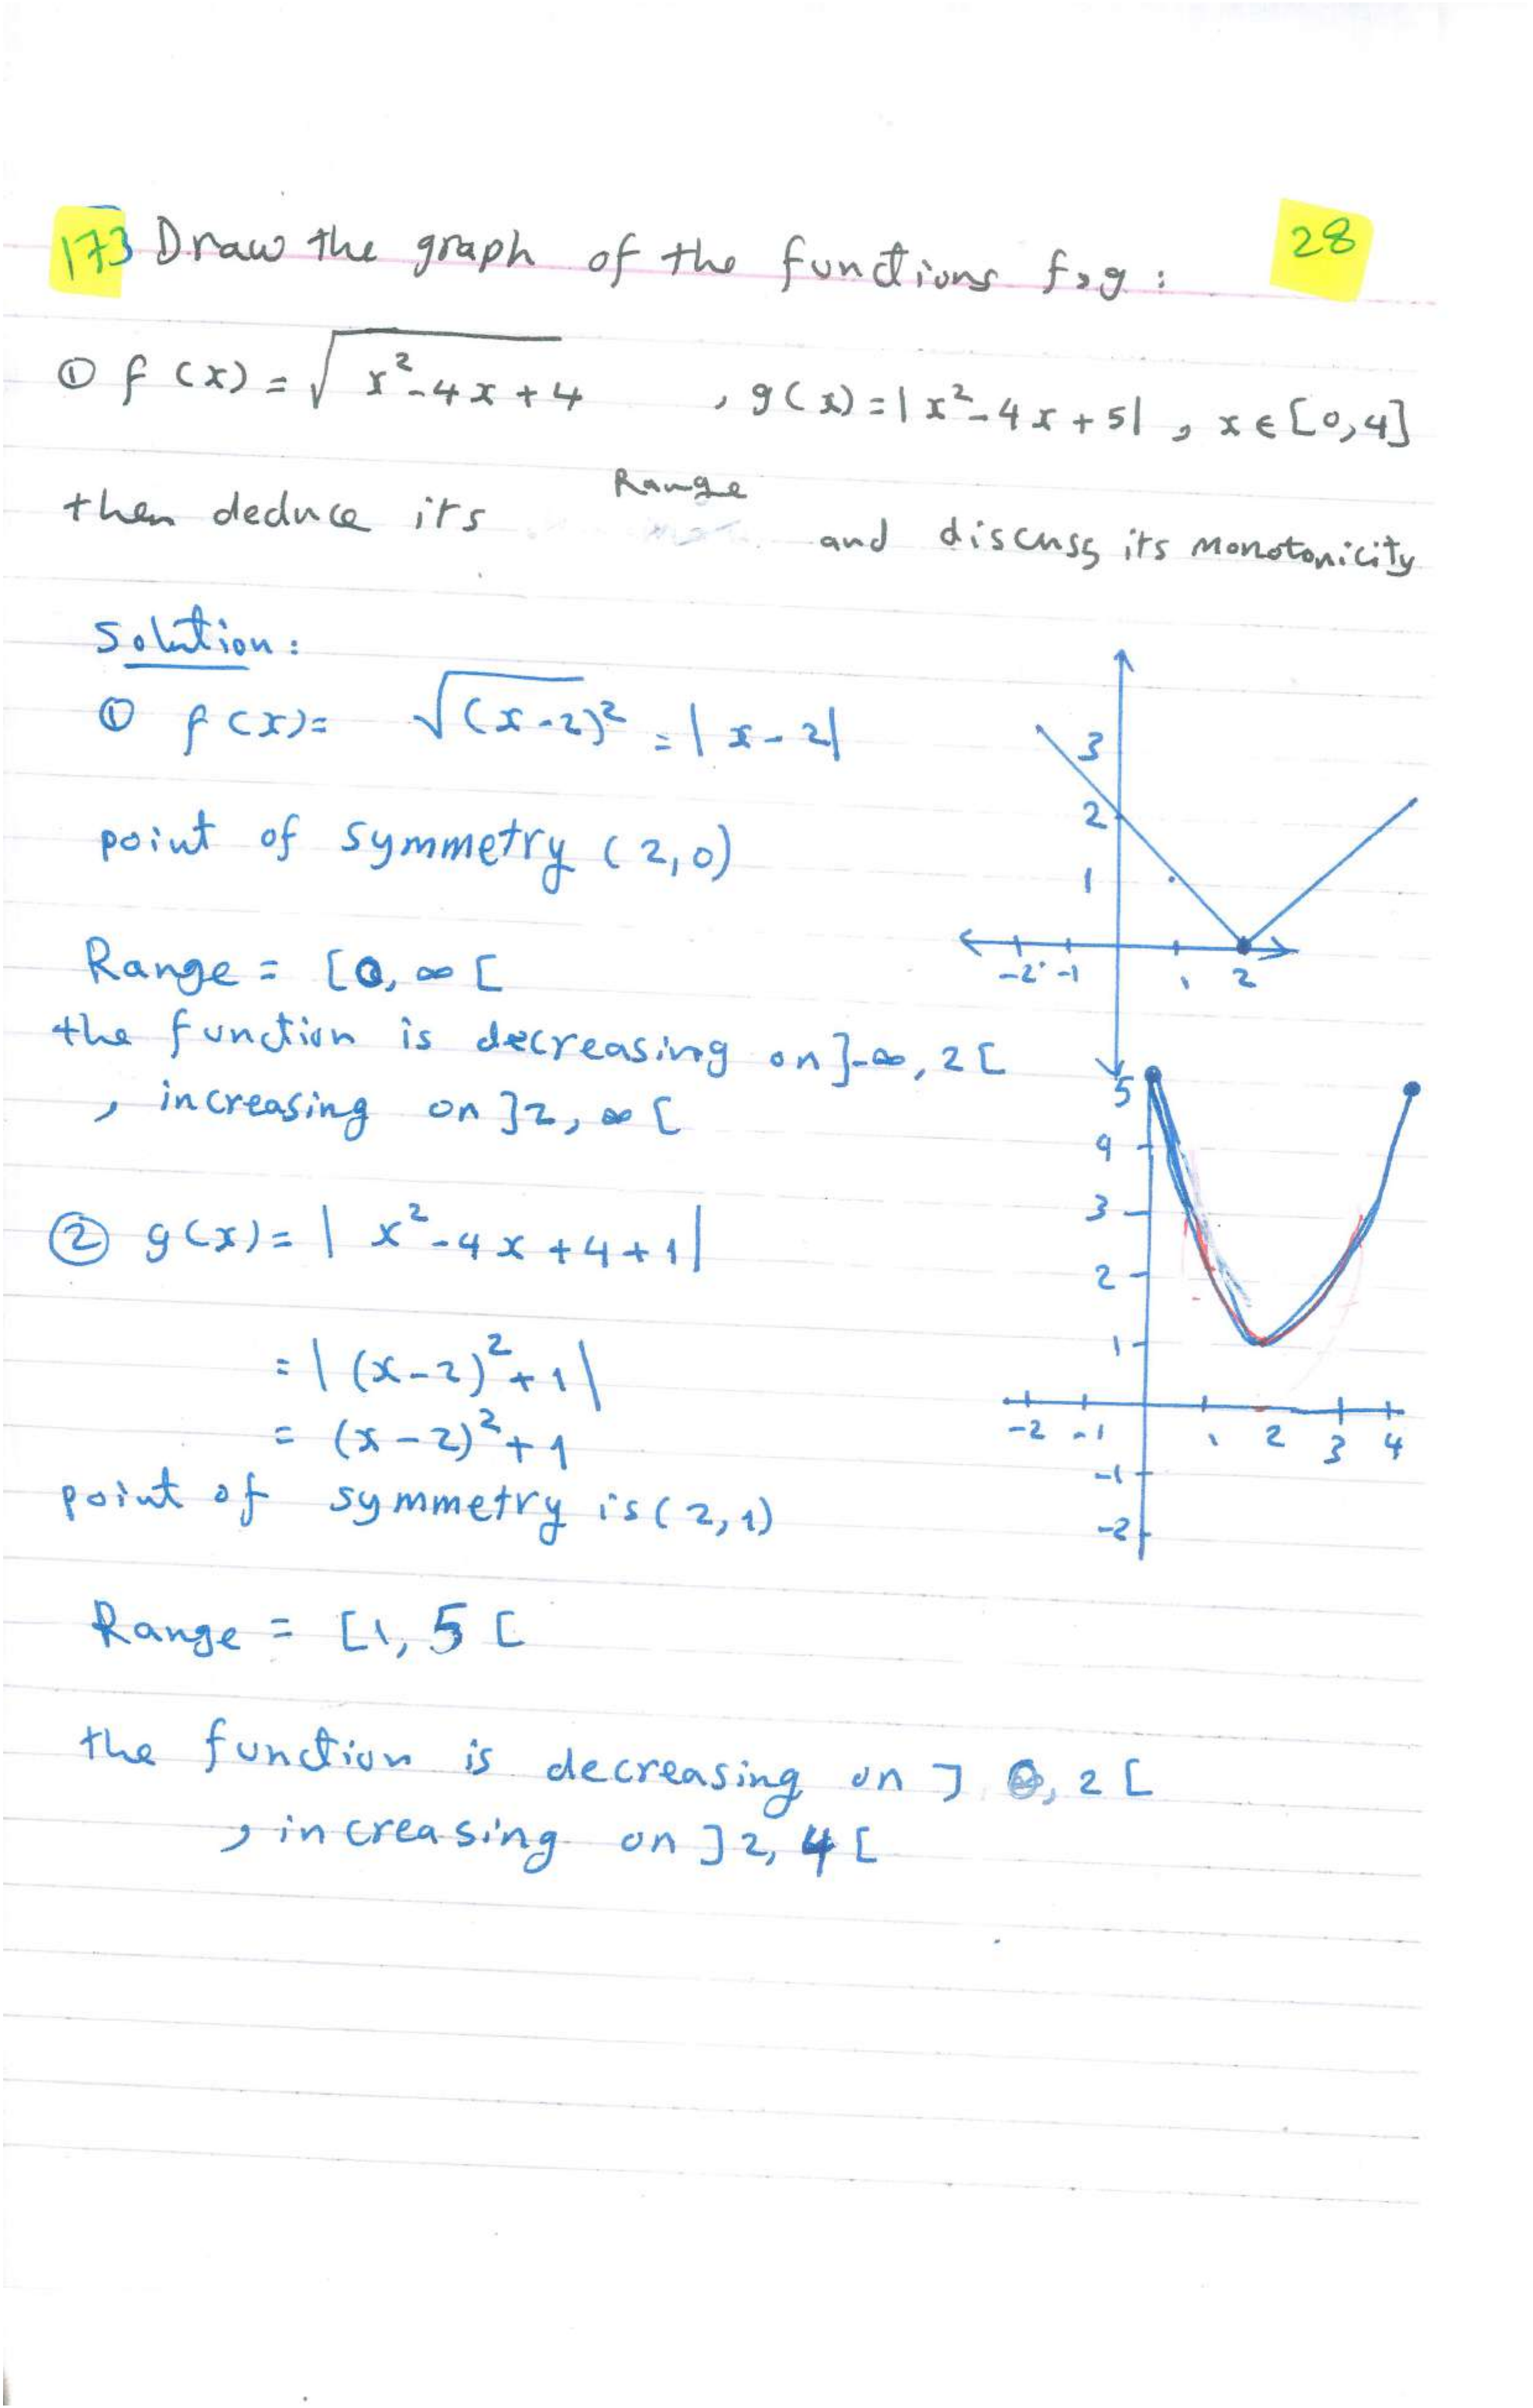 173 Draw the graph of the functions f, g : 28
① f(x) = √(x²-4x+4) , g(x) = |x²-4x+5| , x ∈ [0,4]
then deduce its Range and discuss its monotonicity
Solution:
① f(x) = √(x-2)² = |x-2|
point of symmetry (2,0)
Range = [0, ∞[
the function is decreasing on ]-∞, 2[
, increasing on ]2, ∞[
3
2
1
-2 -1 1 2
② g(x) = |x²-4x+4+1|
= |(x-2)²+1|
= (x-2)²+1
point of symmetry is (2,1)
Range = [1, 5[
the function is decreasing on ]0, 2[
, increasing on ]2, 4[
5
4
3
2
1
-2 -1 1 2 3 4
-1
-2